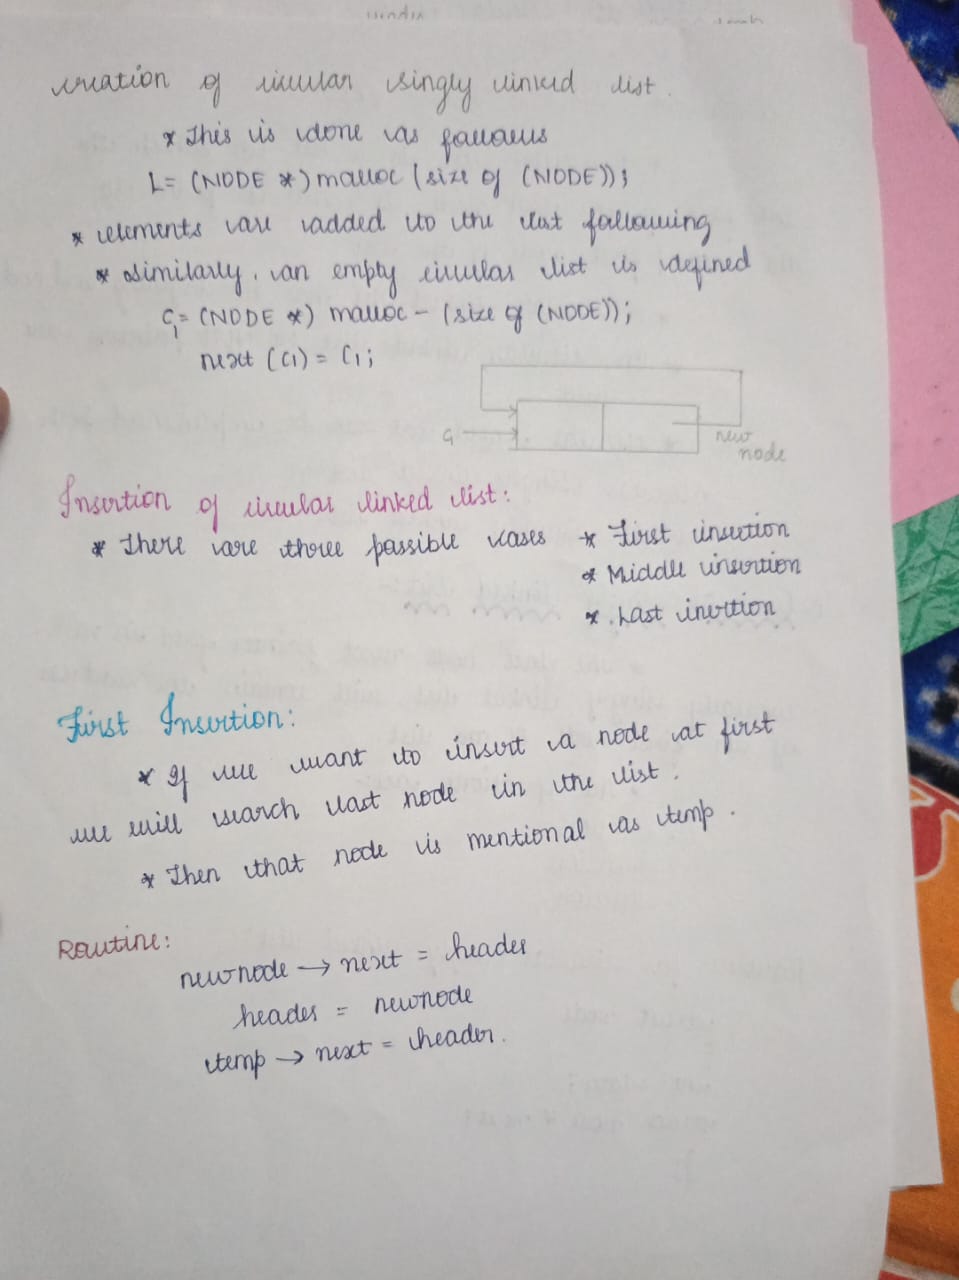 creation of circular singly linked list.
* This is done as follows
L= (NODE *) malloc (size of (NODE));
* elements are added to the list following
* similarly, an empty circular list is defined
C1= (NODE *) malloc - (size of (NODE));
next (C1) = C1;
C1
new
node
Insertion of circular linked list:
* There are three possible cases * First insertion
* Middle insertion
* Last insertion
First Insertion:
* If we want to insert a node at first
we will search last node in the list.
* Then that node is mentional as temp.
Routine:
newnode → next = header
header = newnode
temp → next = header.